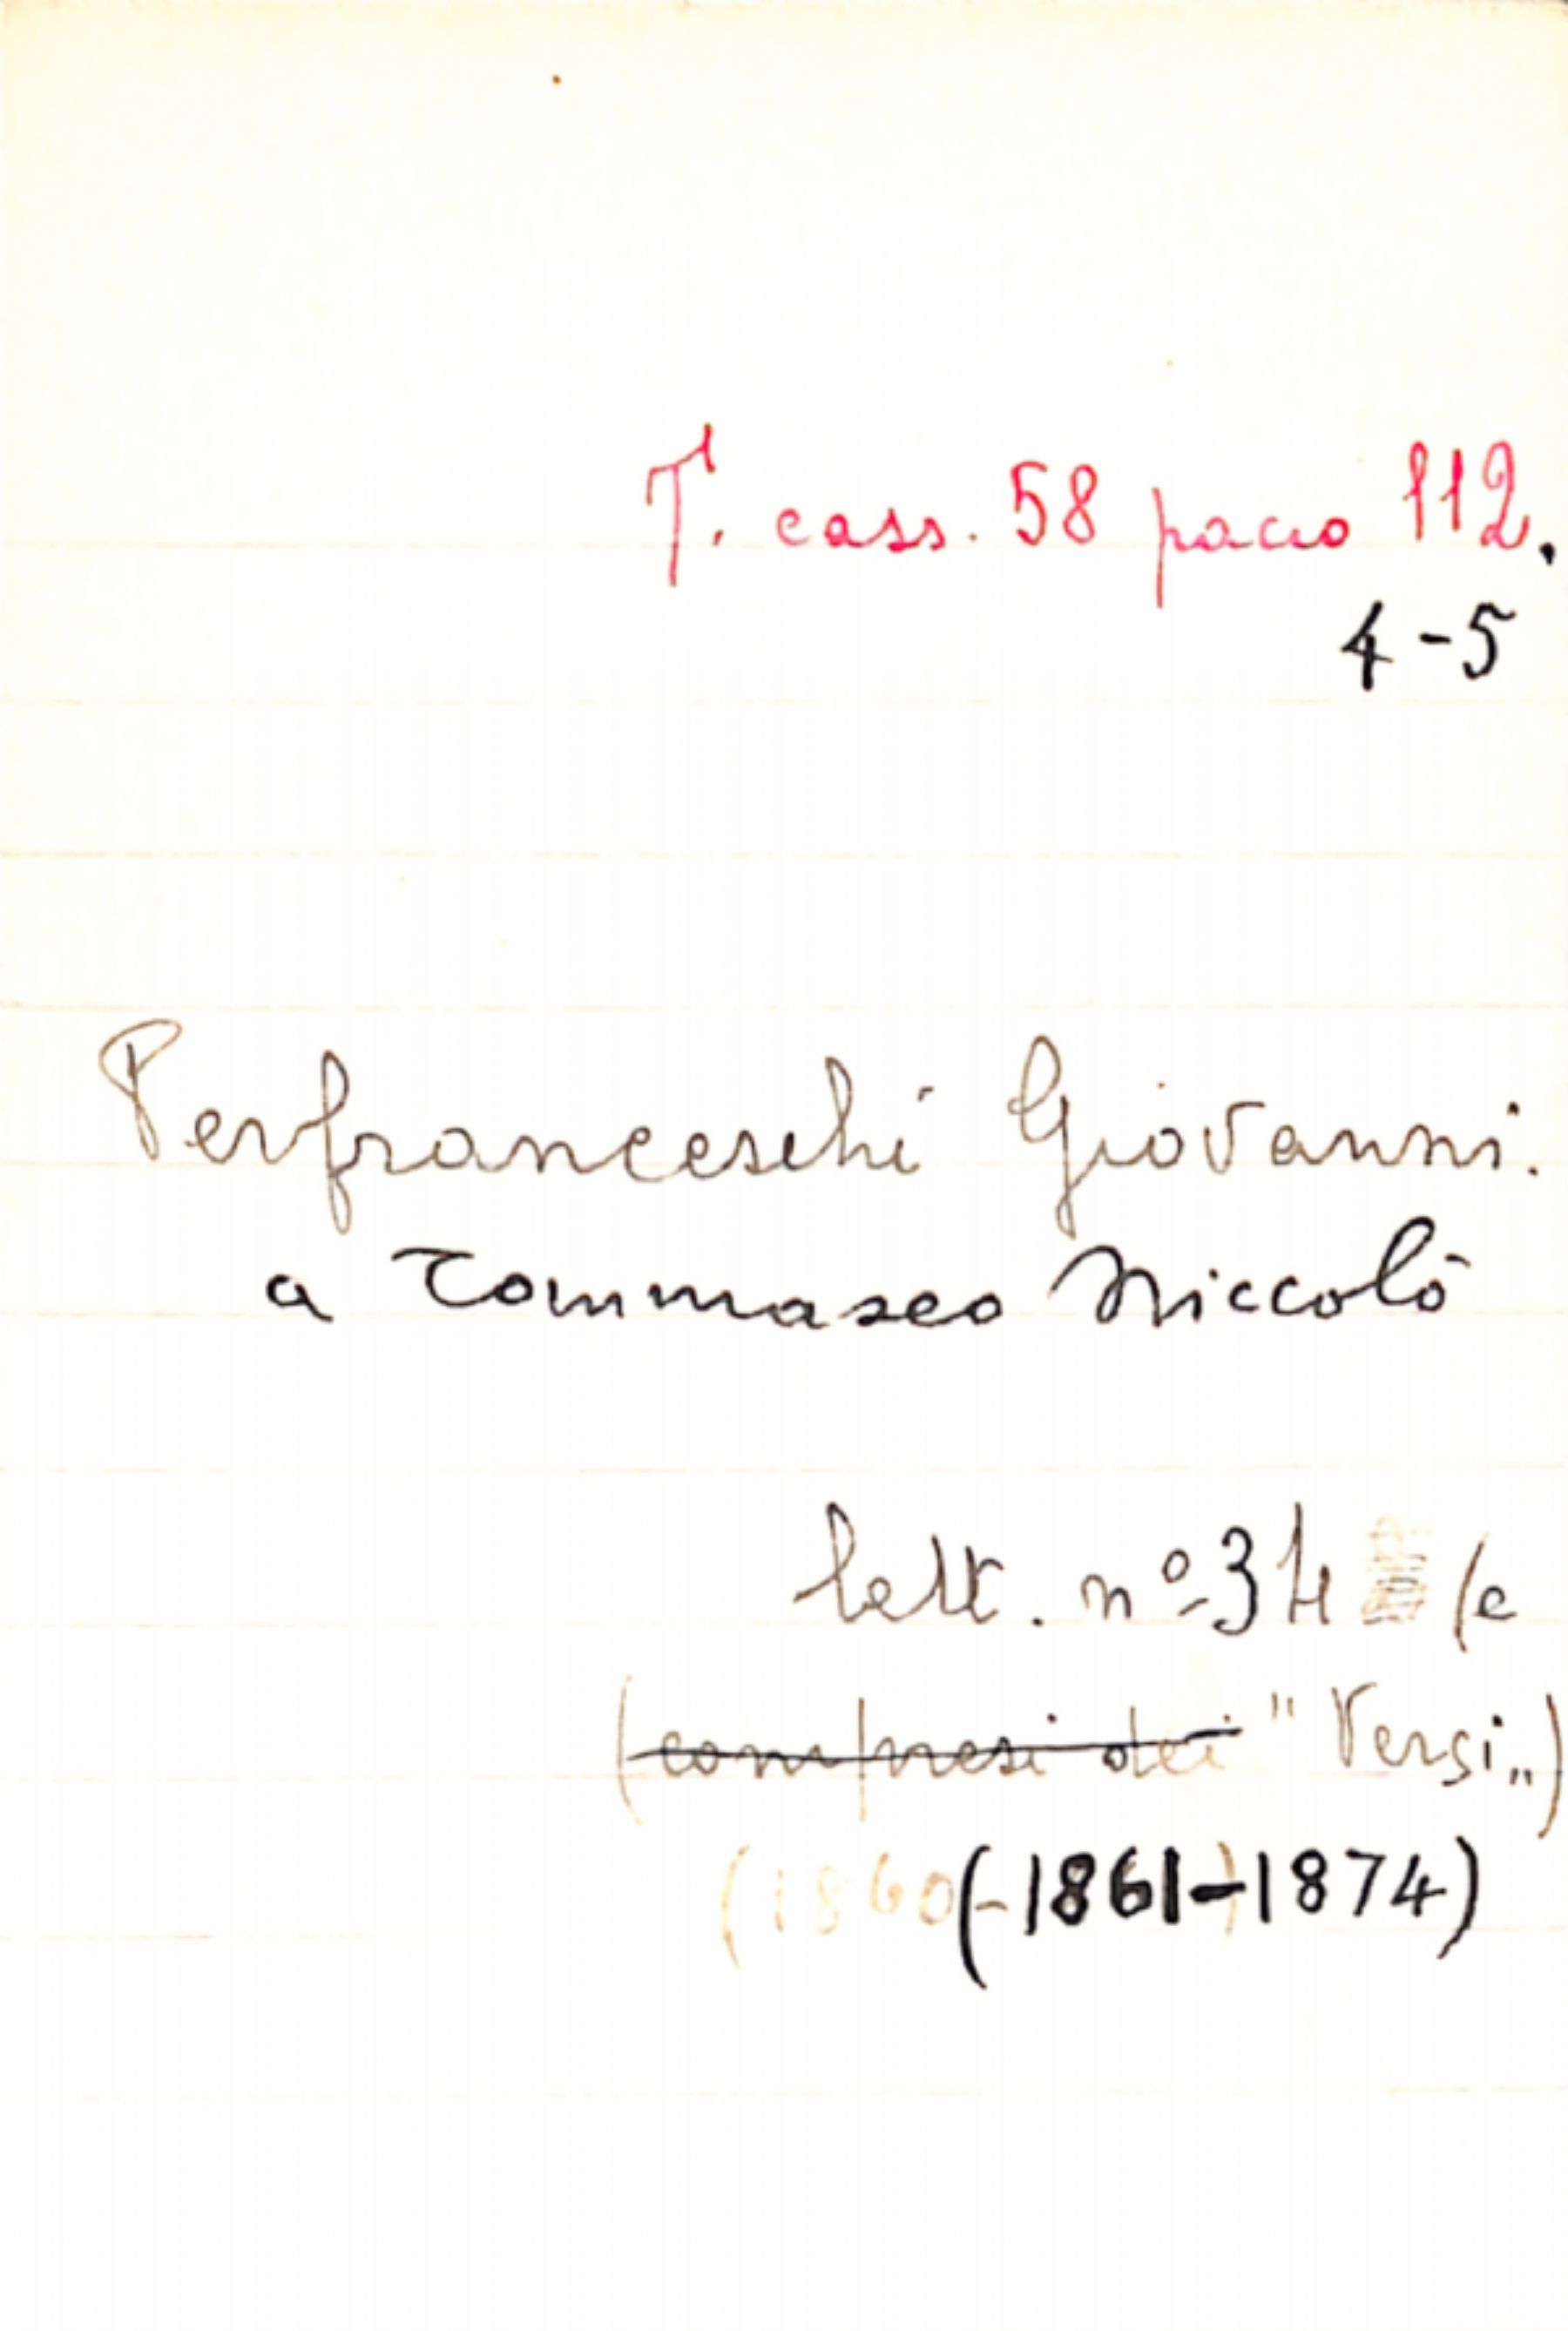 T. cass. 58 pacco 112.
4-5
Perfranceschi Giovanni.
a Tommaseo Niccolò
lett. nº 34 (e
(compresi dei "Versi„)
(1860 (-1861-1874)